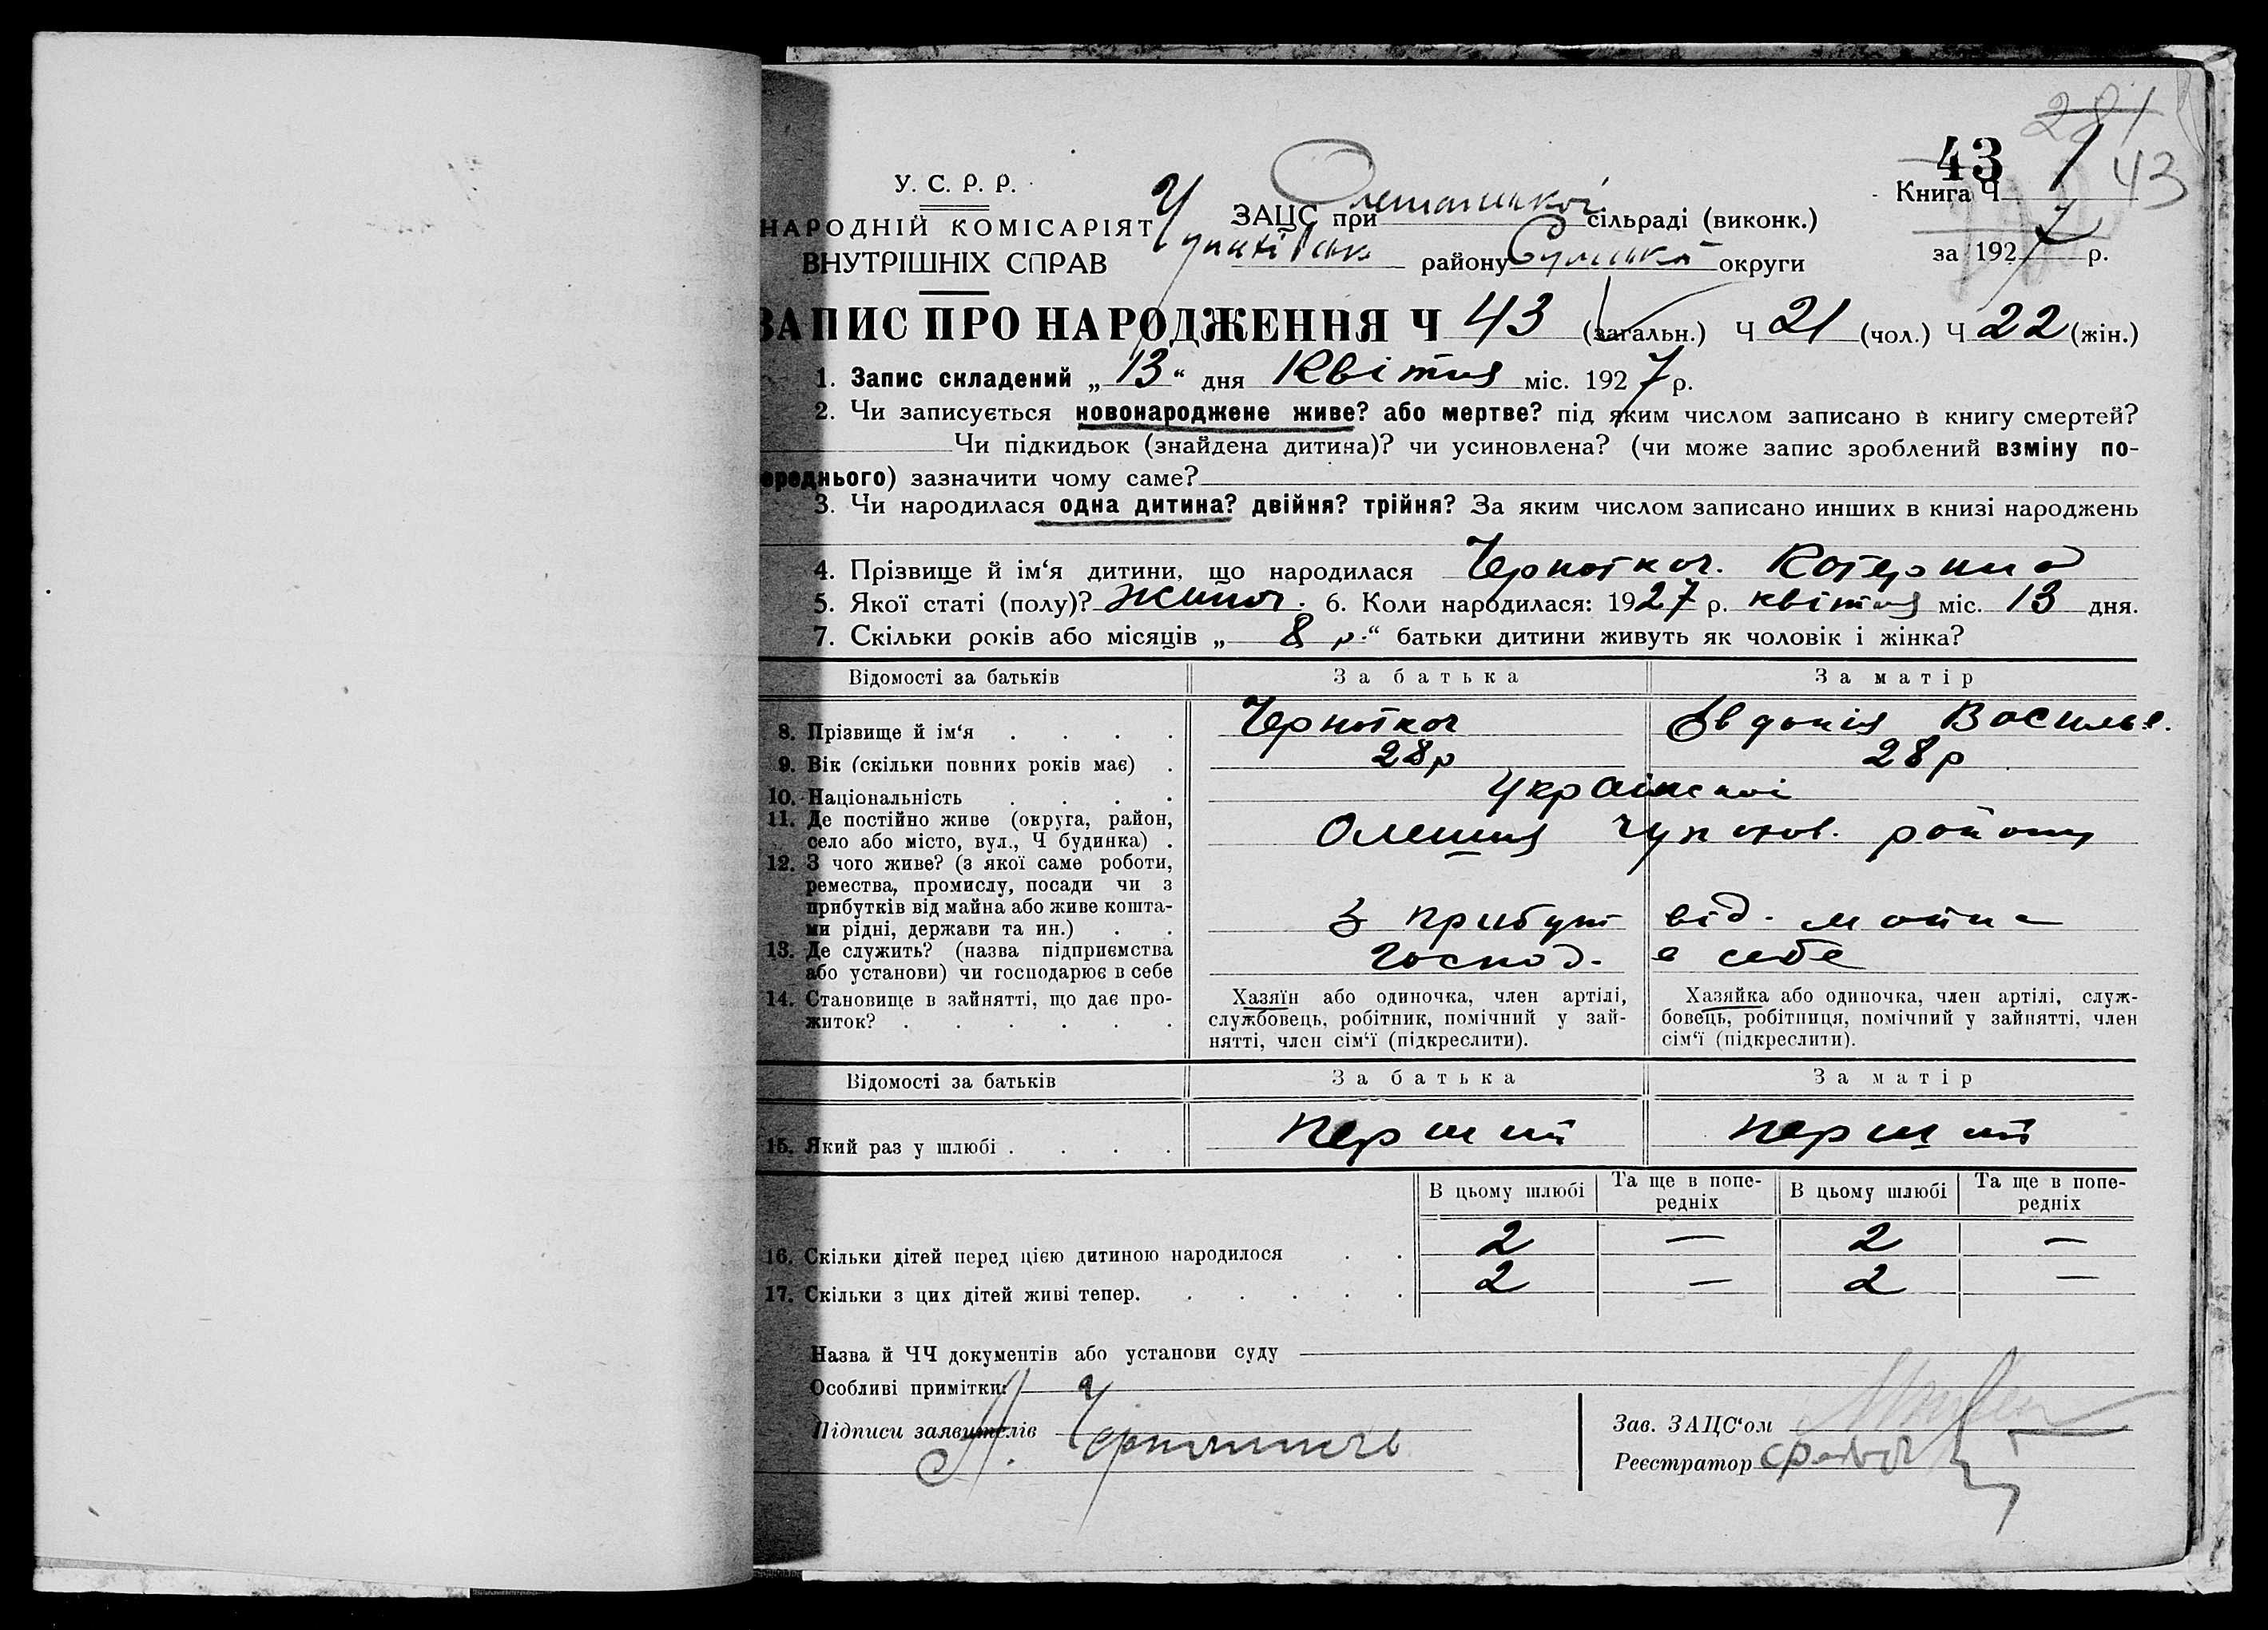 281
43 1 43
У. С. Р. Р. Книга Ч
ЗАЦС при сільраді (виконк.)
НАРОДНІЙ КОМІСАРІЯТ
ВНУТРІШНІХ СПРАВ району округи за 1927 р.
ЗАПИС ПРО НАРОДЖЕННЯ Ч 43 (загальн.) Ч 21 (чол.) Ч 22 (жін.)
1. Запис складений „ 13 “ дня Квітня міс. 1927 р.
2. Чи записується новонароджене живе? або мертве? під яким числом записано в книгу смертей?
Чи підкидьок (знайдена дитина)? чи усиновлена? (чи може запис зроблений взміну по-
ереднього) зазначити чому саме?
3. Чи народилася одна дитина? двійня? трійня? За яким числом записано инших в книзі народжень
4. Прізвище й ім‘я дитини, що народилася Катерина
5. Якої статі (полу)? жиноч. 6. Коли народилася: 1927 р. квітня міс. 13 дня.
7. Скільки років або місяців „ 8 р. “ батьки дитини живуть як чоловік і жінка?
Відомості за батьків За батька За матір
8. Прізвище й ім‘я . . . . Василье.
9. Вік (скільки повних років має) . 28р 28р
10. Національність . . . . Української
11. Де постійно живе (округа, район,
село або місто, вул., Ч будинка) . Олешня Чупахов. району
12. З чого живе? (з якої саме роботи,
ремества, промислу, посади чи з
прибутків від майна або живе кошта-
ми рідні, держави та ин.) . . З прибут від. майна
13. Де служить? (назва підприємства
або установи) чи господарює в себе Господ. в себе
14. Становище в зайнятті, що дає про-
житок? . . . . . .
Хазяїн або одиночка, член артілі,
службовець, робітник, помічний у зай-
нятті, член сім‘ї (підкреслити).
Хазяйка або одиночка, член артілі, служ-
бовець, робітниця, помічний у зайнятті, член
сім‘ї (підкреслити).
Відомості за батьків За батька За матір
15. Який раз у шлюбі . . . . перший перший
В цьому шлюбі Та ще в попе-
редніх В цьому шлюбі Та ще в попе-
редніх
16. Скільки дітей перед цією дитиною народилося . . 2 — 2 —
17. Скільки з цих дітей живі тепер. . . . . . 2 — 2 —
Назва й ЧЧ документів або установи суду
Особливі примітки:
Підписи заявителів Зав. ЗАЦС‘ом
Реєстратор